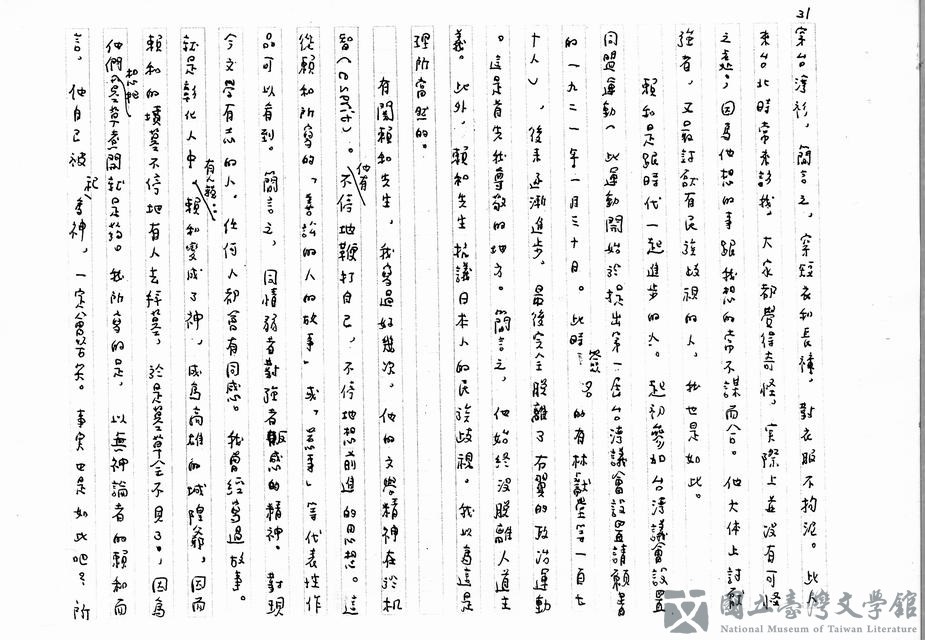 31
穿台湾衫，簡言之，穿短衣和長褲，對衣服不拘泥。此人
來台北時常來訪我，大家都覺得奇怪，實際上並沒有可怪
之處，因為他想的事跟我想的常不謀而合。他大体上討厭
強者，又最討厭有民族歧視的人，我也是如此。
賴和是跟時代一起進步的人。起初參加台湾議會設置
同盟運動（此運動開始於提出第一屆台湾議會設置請願書
的一九二一年一月三十日。此時簽名的有林献堂等一百七
十人），後來逐漸進步，最後完全脫離了右翼的政治運動
。這是首先我尊敬的地方。簡言之，他始終沒脫離人道主
義。此外，賴和先生抗議日本人的民族歧視。我以為這是
理所當然的。
有關賴和先生，我寫過好幾次，他的文學精神在於机
智（esprit）。他有不停地鞭打自己，不停地想前進的思想。這
從賴和所寫的「善訟的人的故事」或「惹事」等代表性作
品可以看到。簡言之，同情弱者對強者敵感的精神。對現
今文學有志的人，任何人都會有同感。我曾經寫過故事。
就是彰化人中有人說：賴和變成了神，成為高雄的城隍爺，因而
賴和的墳墓不停地有人去拜墓，於是墓草全不見了。因為
他們想把墓草煮開就是葯。我所寫的是，以無神論者的賴和而
言，他自己被祀為神，一定會苦笑。事實也是如此吧？所
國立臺灣文學館
National Museum of Taiwan Literature